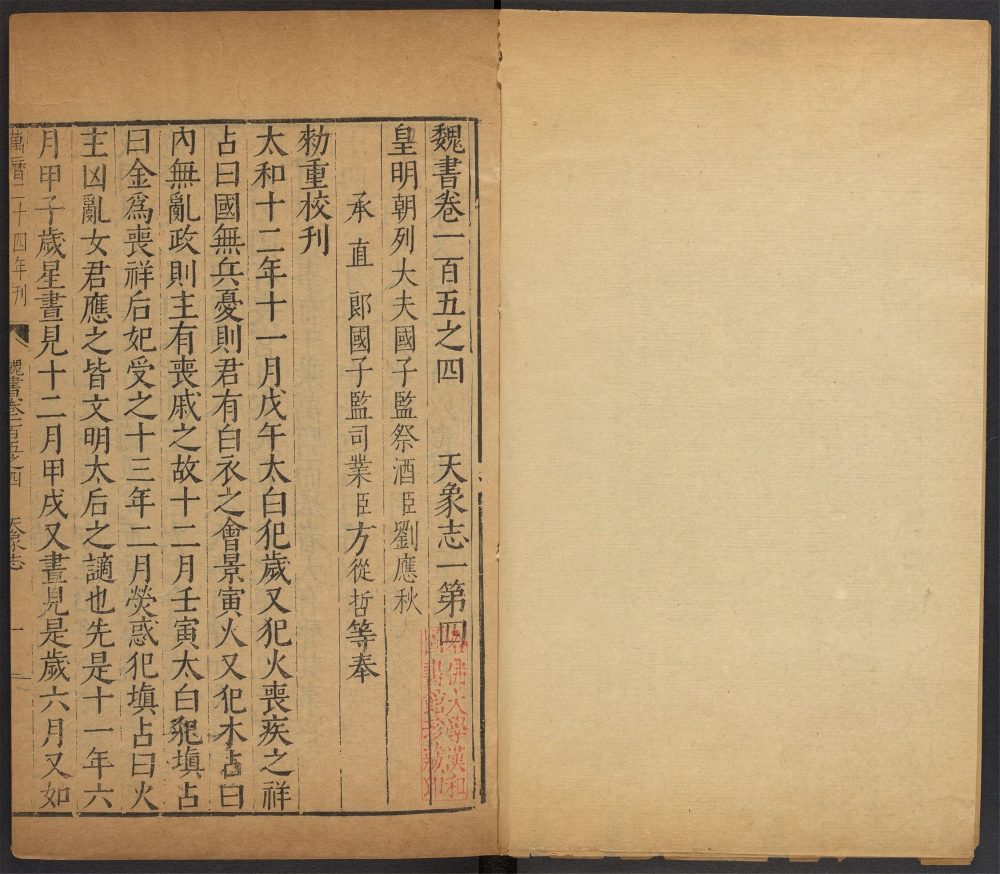 魏書卷一百五之四　天象志一第四
皇明朝列大夫國子監祭酒臣劉應秋
承直郞國子監司業臣方從哲等奉
勑重校刊
太和十二年十一月戊午太白犯歲又犯火喪疾之祥
占曰國無兵憂則君有白衣之會景寅火又犯木占曰
內無亂政則主有喪戚之故十二月壬寅太白犯塡占
曰金爲喪祥后妃受之十三年二月熒惑犯塡占曰火
主凶亂女君應之皆文明太后之謫也先是十一年六
月甲子歲星晝見十二月甲戌又晝見是歲六月又如
萬曆二十四年刊
魏書卷一百五之四　天象志　一
哈佛大學漢和
圖書館珍藏印